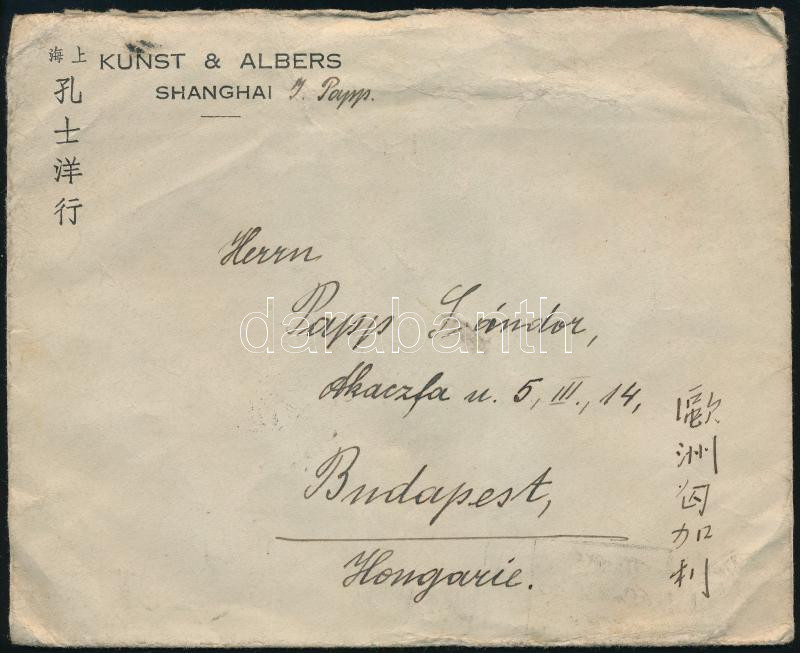 上海
孔士洋行
KUNST & ALBERS
SHANGHAI J. Papp.
Herrn
Papp Sándor,
Akaczfa u. 5, III., 14,
Budapest,
Hongarie.
歐洲匈加利
darabanth